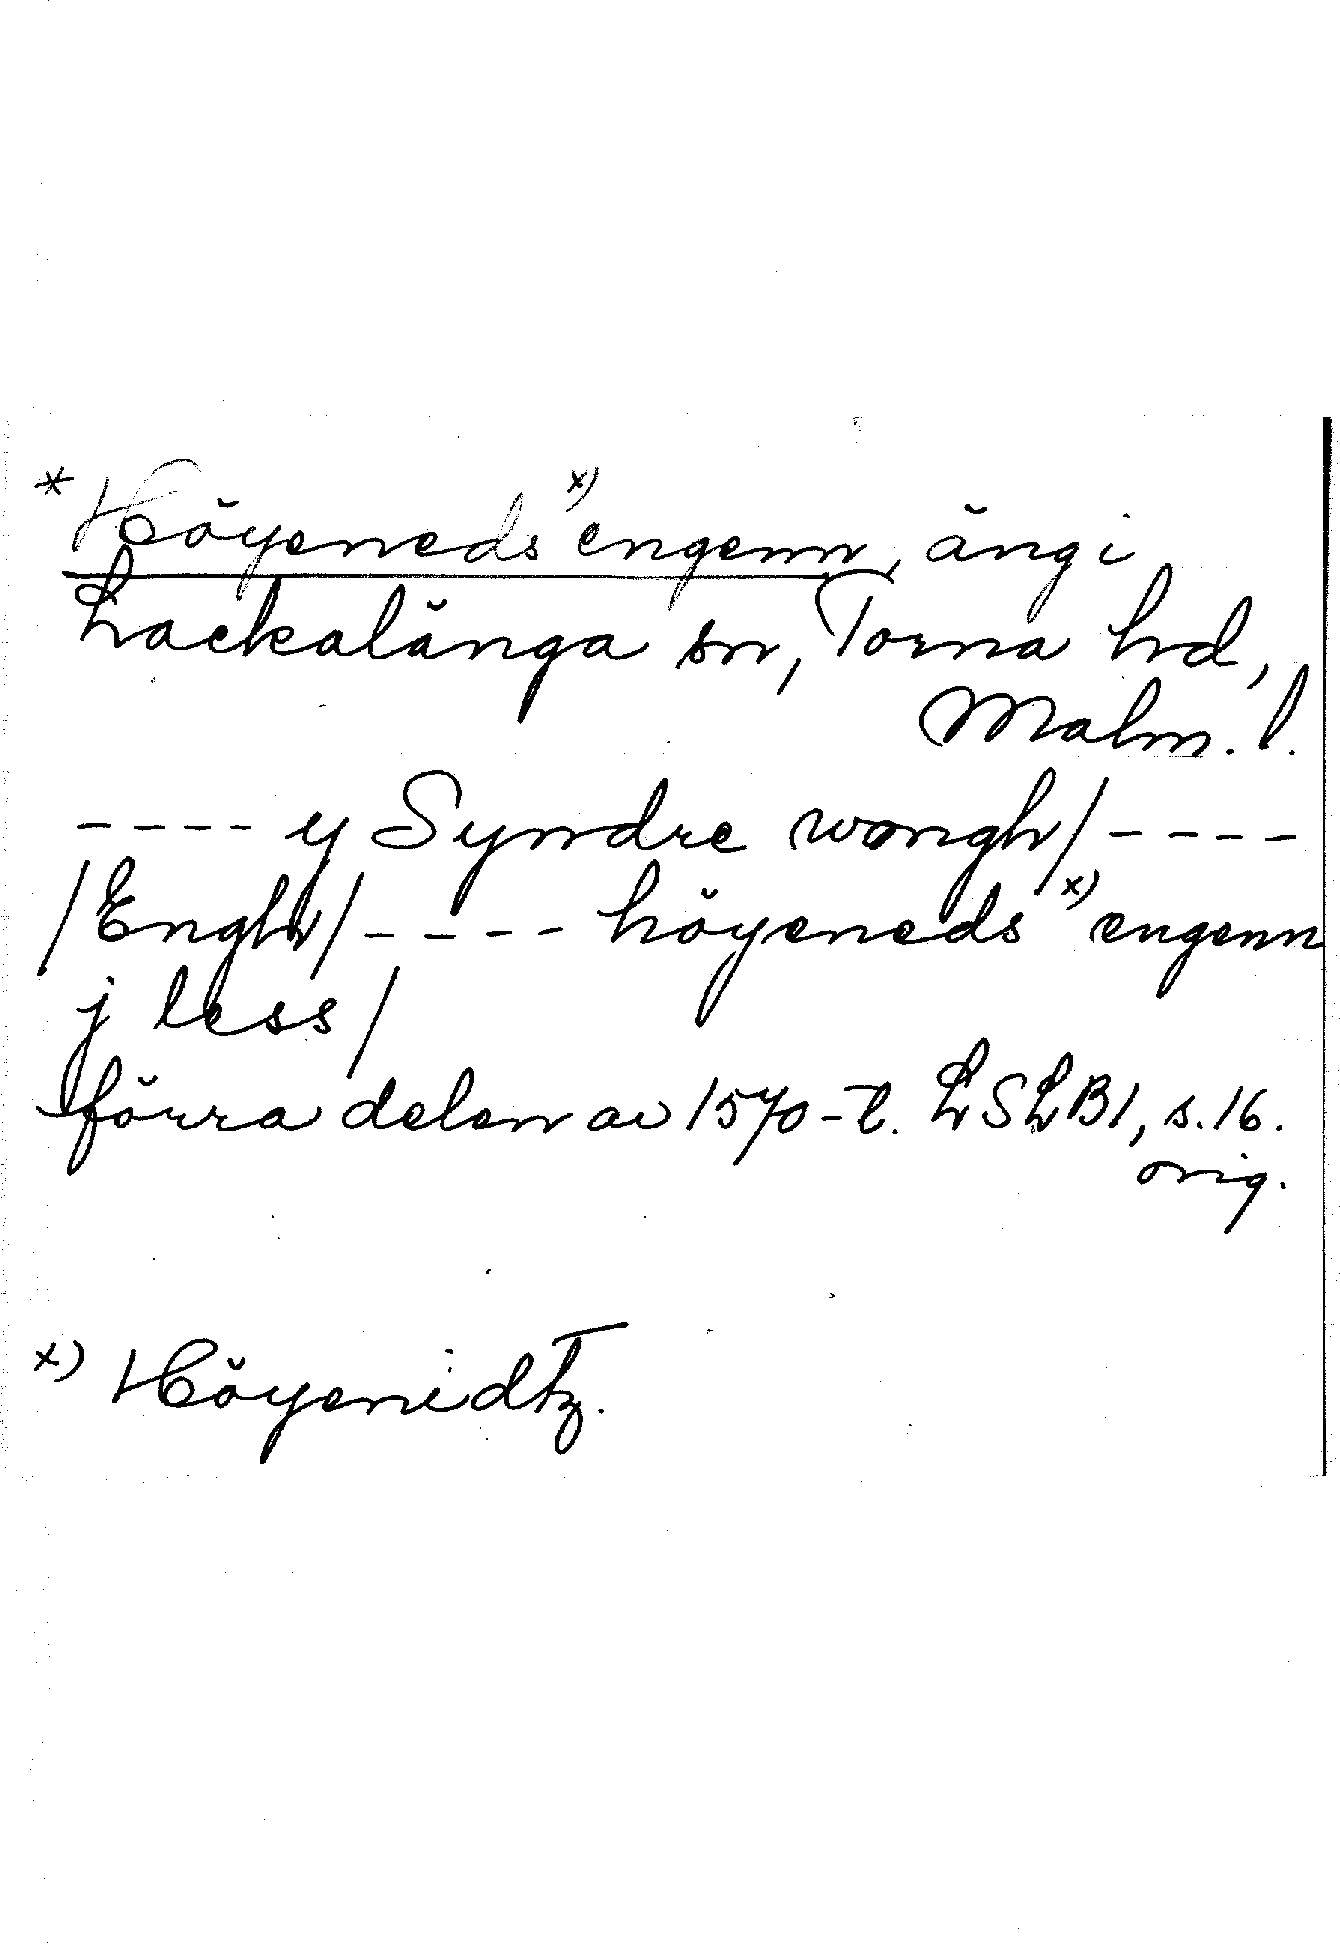 * Höyeneds x) engenn, äng i
Lackalänga sn, Torna hd,
Malm. l.
---- y Syndre wongh/ ----
/Engh/ ---- höyeneds x) engenn
j less/
förra delen av 1570-t. LSLB1, s.16.
orig.
x) Höyenidtz.